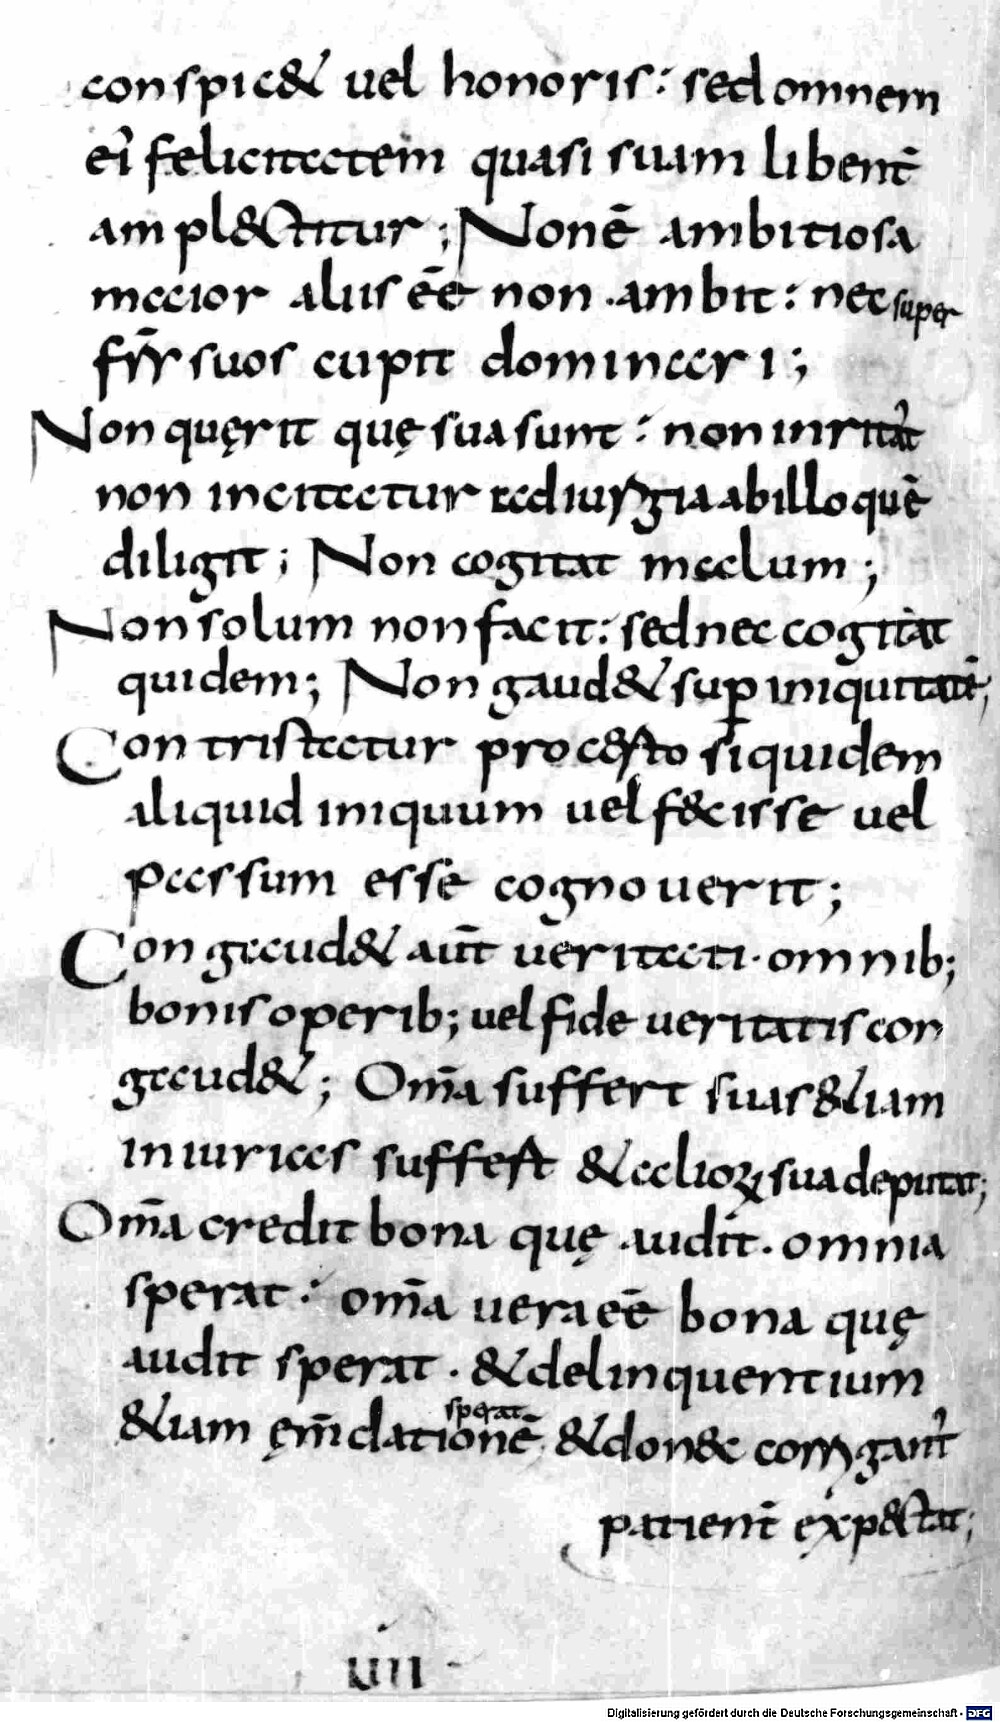 conspic& uel honoris: sed omnem
ei felicitatem quasi suam libent̄
ampl&titur; Non ē ambitiosa
maior aliis ēē non ambit: nec super
frr̄ suos cupit dominari;
Non quęrit quę sua sunt: non inritat᷒
non incitatur ad iurgia ab illo quē
diligit; Non cogitat malum;
Non solum non facit: sed nec cogitat
quidem; Non gaud& sup iniquitatē;
Contristatur pro cęsto si quidem
aliquid iniquum uel f&cisse uel
passum esse cognouerit;
Congaud& aut̄ ueritati. omnib;
bonis operib; uel fide ueritatis con
gaud&; Om̄a suffert suas &iam
iniurias suffest & alioꝝ sua deputat;
Om̄a credit bona quę audit. omnia
sperat: om̄a uera ēē bona quę
audit sperat. & delinquentium
&iam ęm̄dationē sperat & donec corrigant᷒
patient̄ exp&tat;
iiii
Digitalisierung gefördert durch die Deutsche Forschungsgemeinschaft - DFG